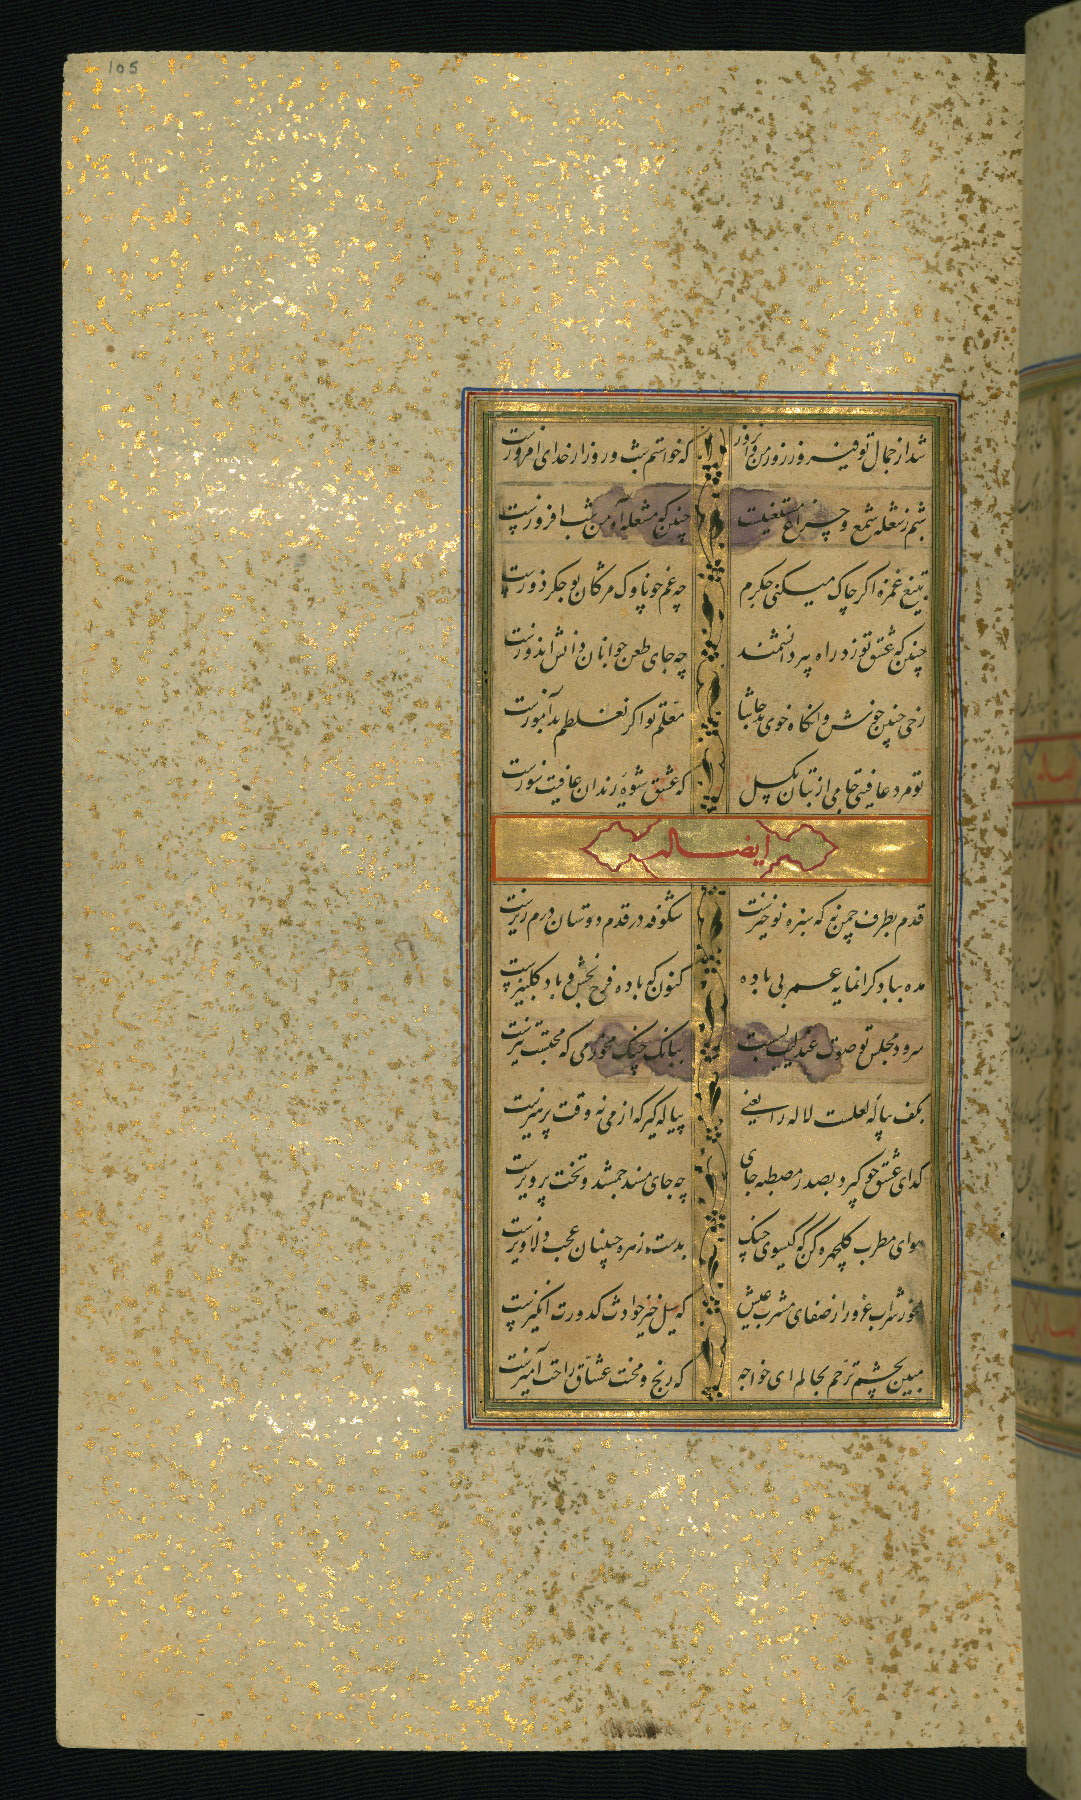 105
شد از جمال تو فیروز روز من امروز که خواستم بشب و روز از خدای امروزت
شبم ز شعله شمع و چراغ مستغنیست چنین که مشعله آه من شب افروزست
بتیغ غمزه اگر چاک میکنی جگرم چه غم چو ناوک مژگان تو جگر دوزست
چنین که عشق تو زد راه پیر دانشمند چه جای طعن جوانان دانش اندوزست
رخی چنین خوش وانگاه خوی بد حاشا معلم تو اگر نه غلط بدآموزست
تو مرد عافیتی جامی از بتان بگسل که عشق شیوه رندان عافیت سوزست
ایضاله
قدم بطرف چمن نه که سبزه نوخیزست شکوفه در قدم دوستان درم ریزست
مده بباد گرانمایه عمر بی باده کنون که باده فرح بخش و باد گلبیزست
سرود مجلس تو صوت عندلیب بست ببانک چنک مخور می که محتسب تیزست
بکف پیاله لعلست لاله را یعنی پیاله گیر که از می نه وقت پرهیزست
گدای عشق چو گیرد بصدر مصطبه جای چه جای مسند جمشید و تخت پرویزست
هوای مطرب گلچهره کن که گیسوی چنک بدست زهره جبینان عجب دلاویزست
مخور شراب غرور از صفای مشرب عیش که سیل خیز حوادث کدورت انگیزست
مبین بچشم ترحم بحالم ای خواجه که رنج و محنت عشاق راحت آمیزست